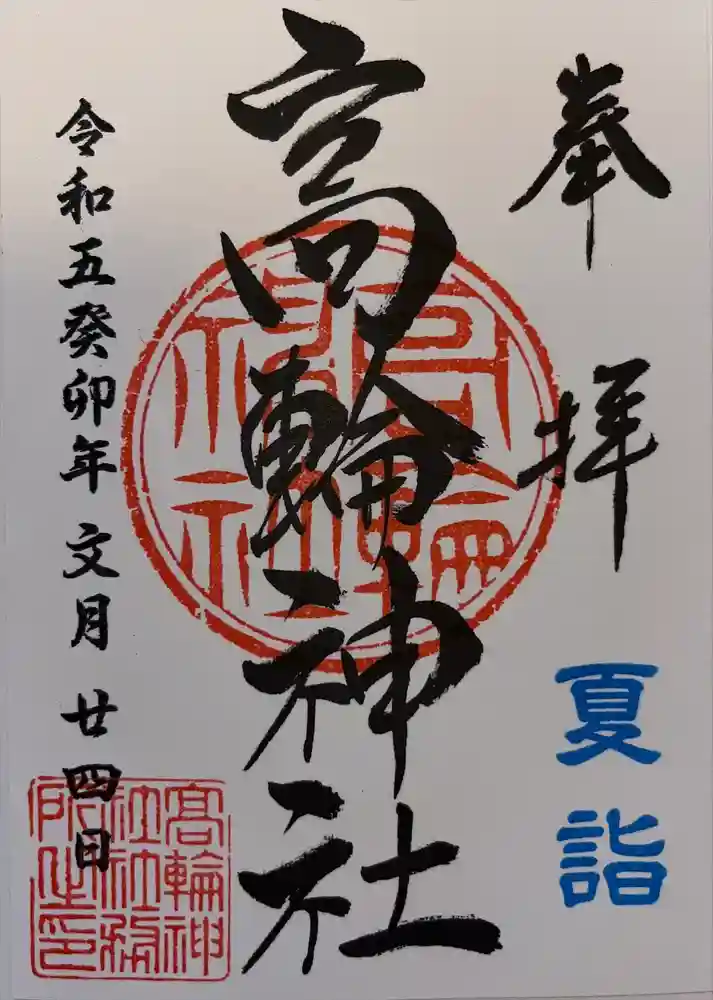 奉拝
夏詣
高輪神社
高輪神社
令和五癸卯年 文月 廿四日
高輪神
社社務
所之印